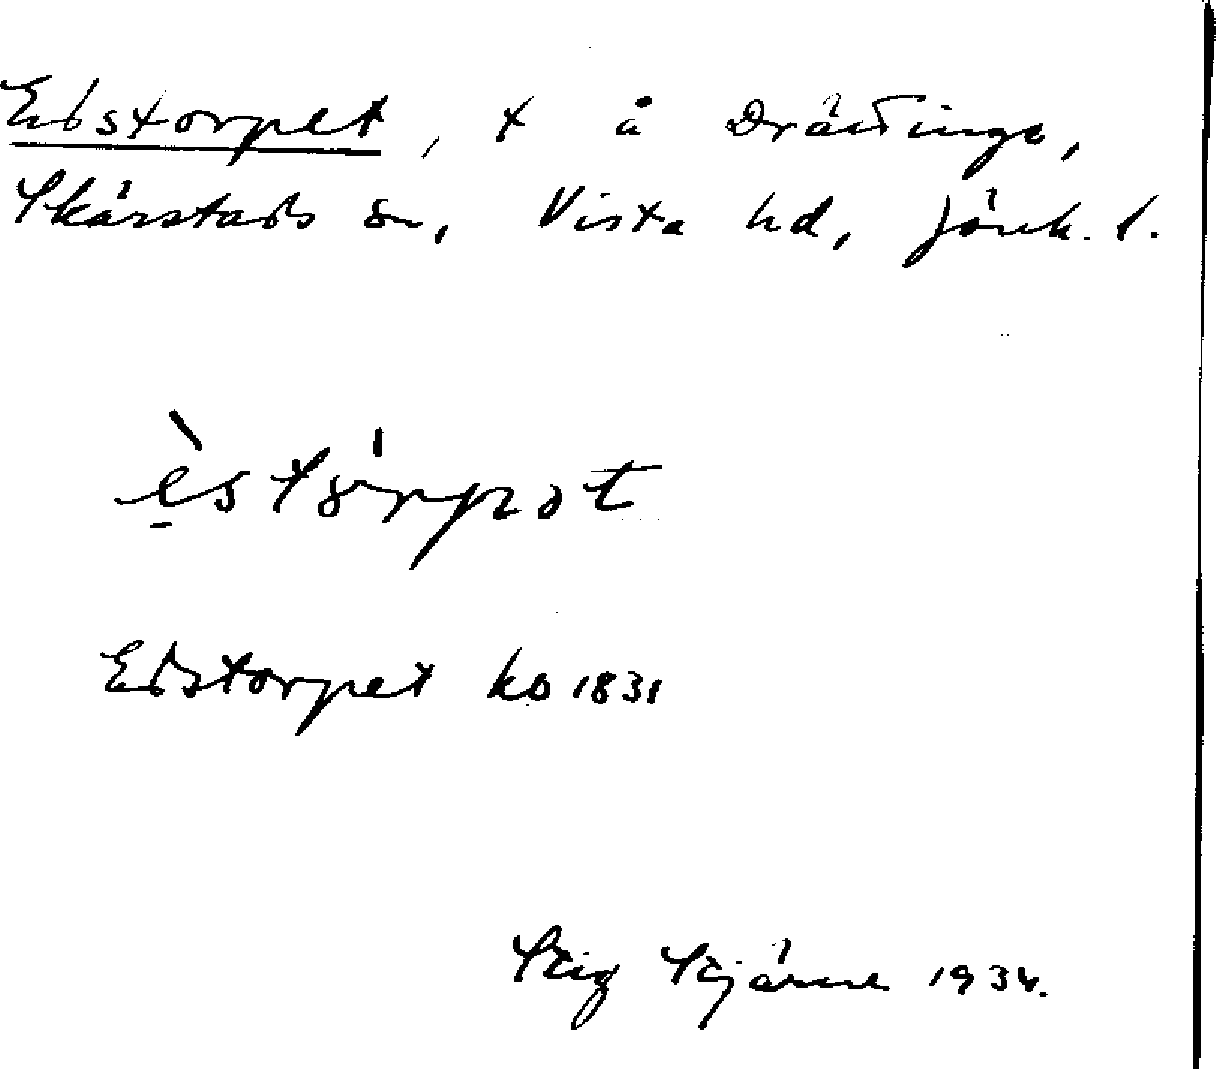 Edstorpet, t å Drättinge,
Skärstads sn, Vista hd, Jönk. l.
èstórpət
Edstorpet kb 1831
Stig Stjärne 1934.